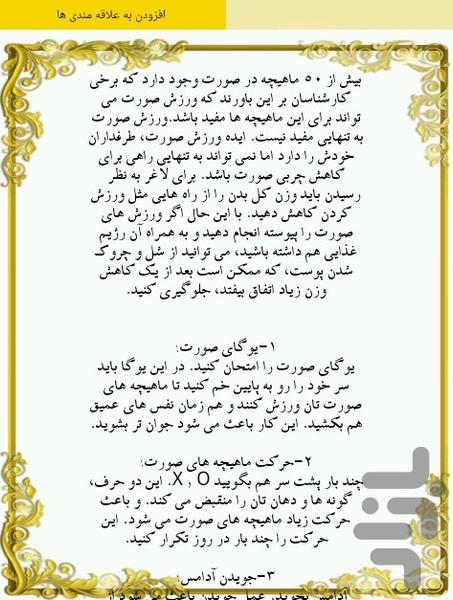 افزودن به علاقه مندی ها
بیش از ۵۰ ماهیچه در صورت وجود دارد که برخی
کارشناسان بر این باورند که ورزش صورت می
تواند برای این ماهیچه ها مفید باشد.ورزش صورت
به تنهایی مفید نیست. ایده ورزش صورت، طرفداران
خودش را دارد اما نمی تواند به تنهایی راهی برای
کاهش چربی صورت باشد. برای لاغر به نظر
رسیدن باید وزن کل بدن را از راه هایی مثل ورزش
کردن کاهش دهید. با این حال اگر ورزش های
صورت را پیوسته انجام دهید و به همراه آن رژیم
غذایی هم داشته باشید، می توانید از شل و چروک
شدن پوست، که ممکن است بعد از یک کاهش
وزن زیاد اتفاق بیفتد، جلوگیری کنید.
۱-یوگای صورت:
یوگای صورت را امتحان کنید. در این یوگا باید
سر خود را رو به پایین خم کنید تا ماهیچه های
صورت تان ورزش کنند و هم زمان نفس های عمیق
هم بکشید. این کار باعث می شود جوان تر بشوید.
۲-حرکت ماهیچه های صورت:
چند بار پشت سر هم بگویید X , O. این دو حرف،
گونه ها و دهان تان را منقبض می کند. و باعث
حرکت زیاد ماهیچه های صورت می شود. این
حرکت را چند بار در روز تکرار کنید.
۳-جویدن آدامس:
آدامس بجوید. عمل جویدن باعث می شود از
بازار